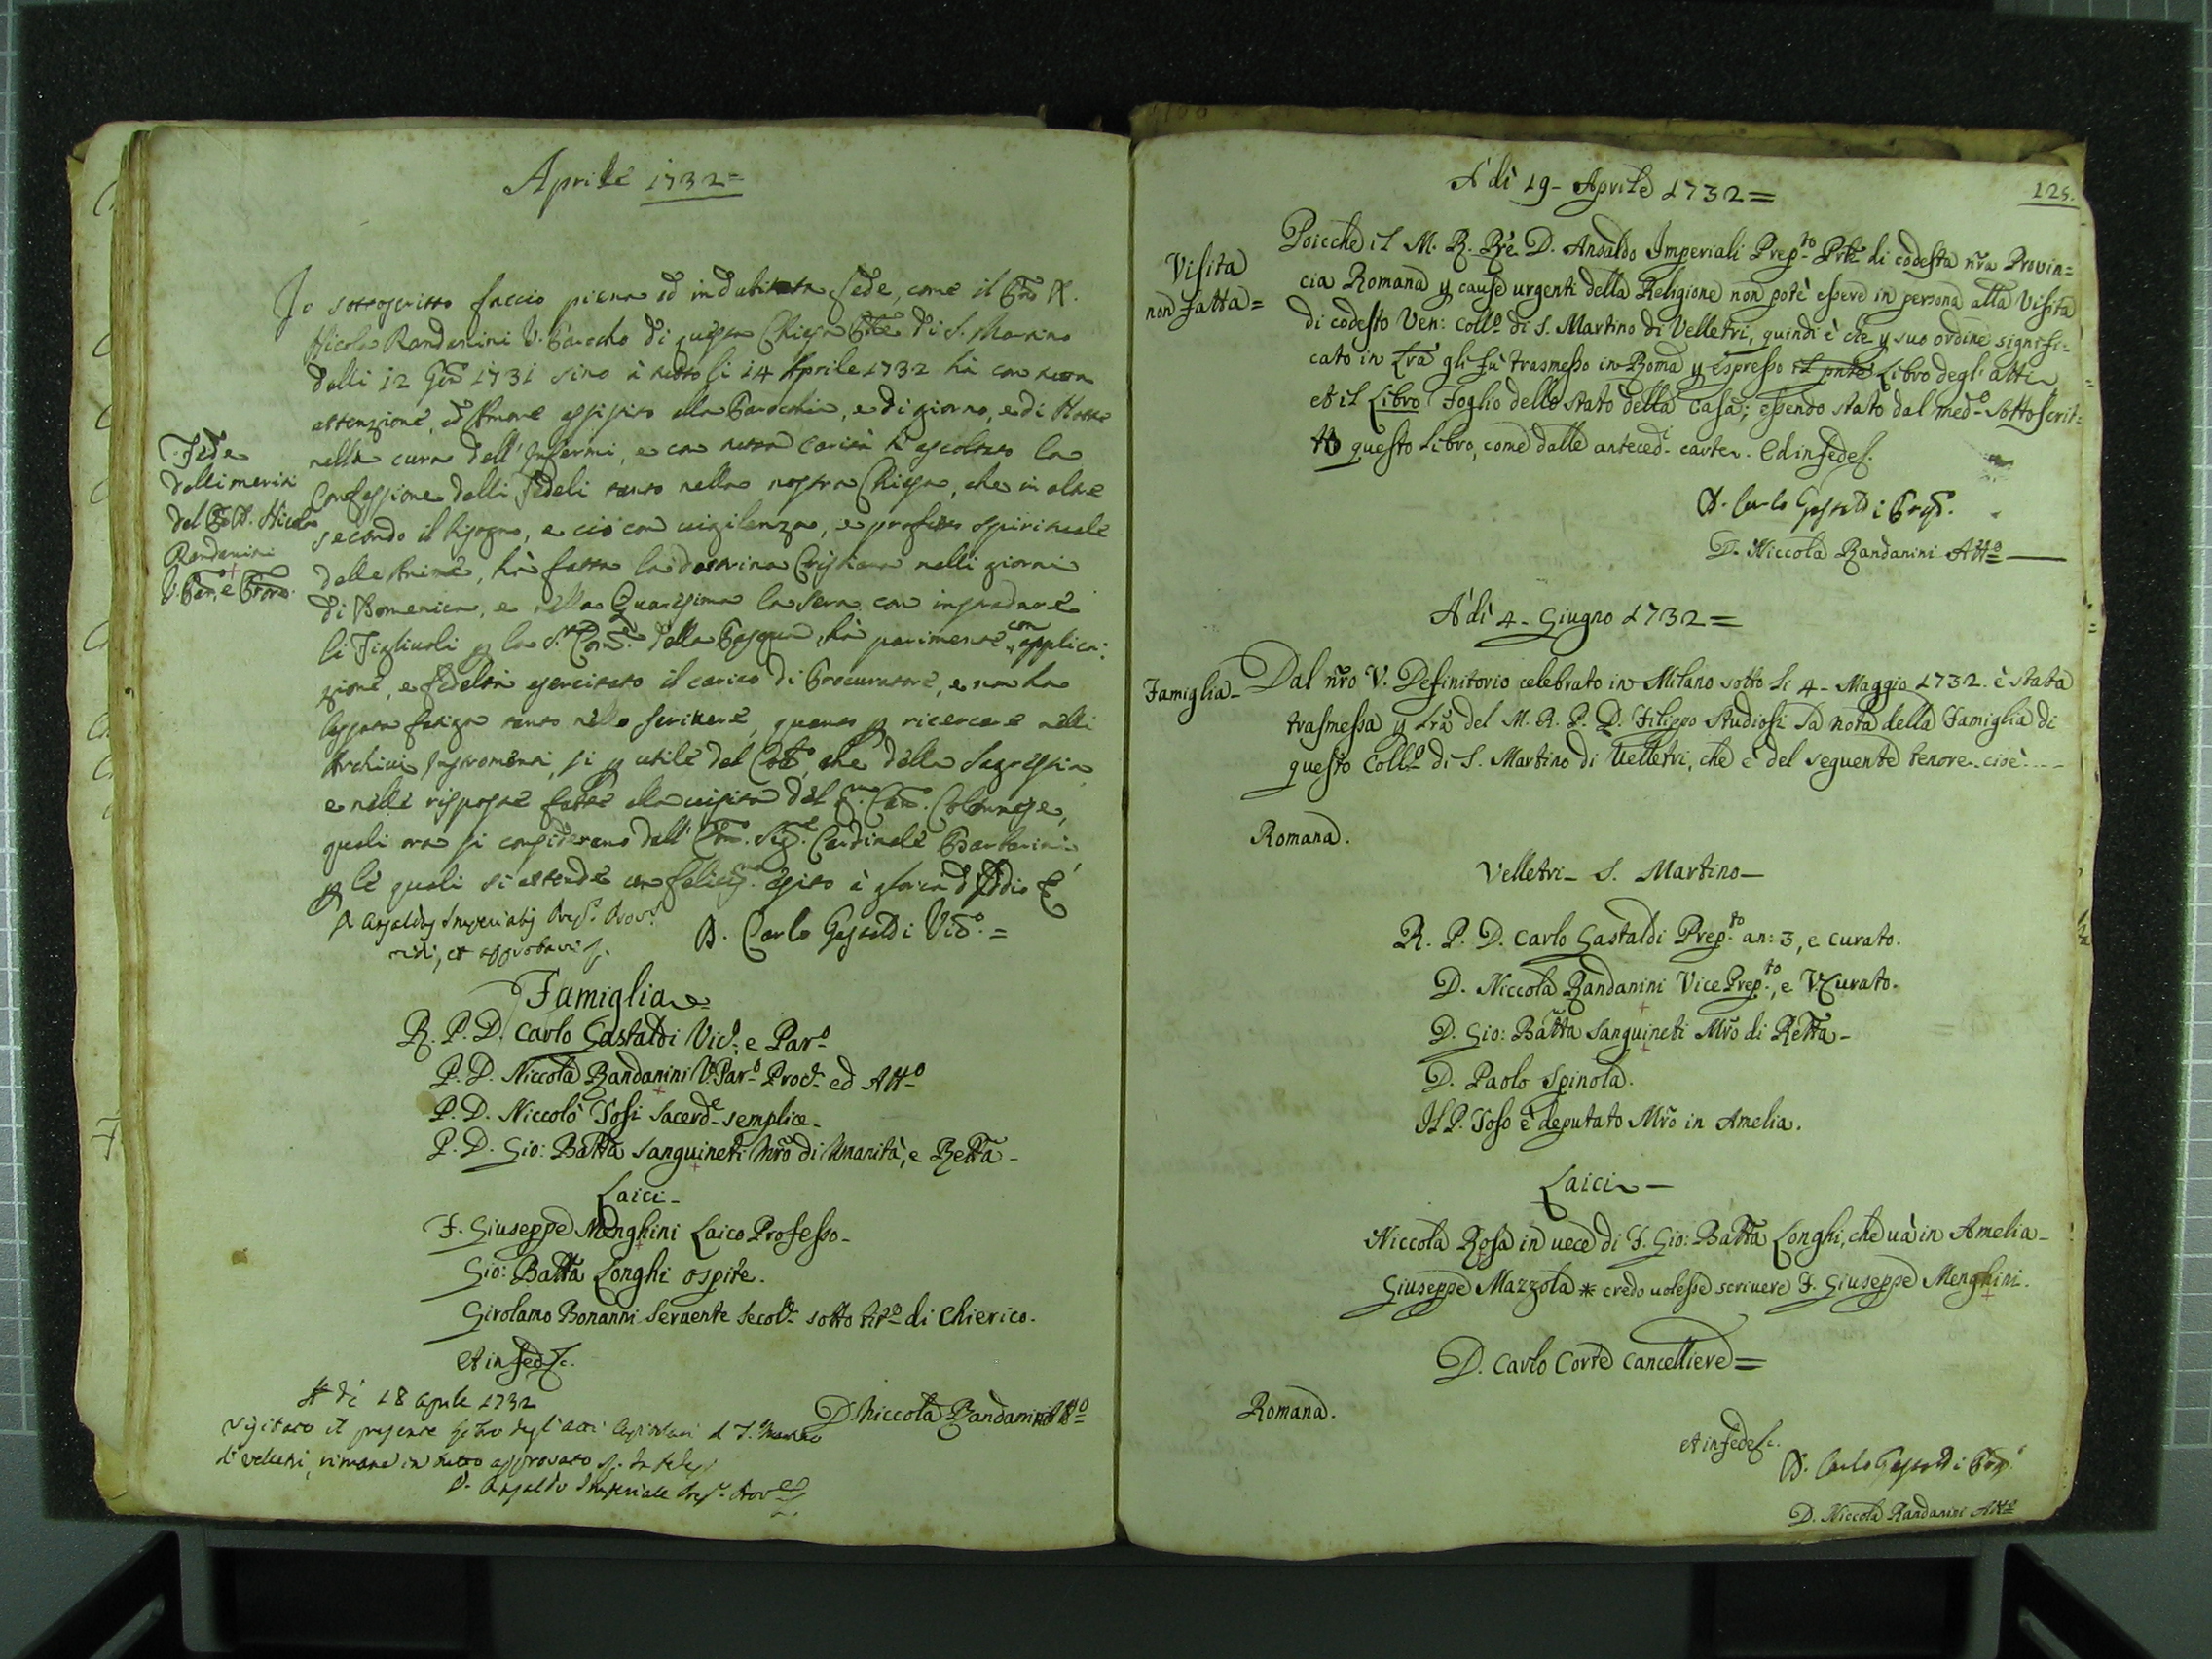 Aprile 1732=
Io sottoscritto faccio piena ed indubitata fede, come il P̃re D.
Nicola Randanini V. Parocho di questa Chiesa P̃le di S. Martino
dalli 12 Gen̅ 1731 sino à tutto li 14 Aprile 1732 hà con tutta
attenzione, ed Amore assistito alla Parochia, e di giorno, e di Notte
nella cura dell'Infermi, e con tutta carità hà ascoltato la
Confessione delli fedeli tanto nella nostra Chiesa, che in altre
secondo il bisogno, e ciò con uigilenza, e profitto spirituale
delle Anime, hà fatta la dottrina Cristiana nelli giorni
di Domenica, e nella Quaresima la sera con
li Figliuoli p la S.ta Com.e della Pasqua, hà parimente con applica:
zione, e fedeltà esercitato il carico di Procuratore, e non ha
fatiga tanto nello scriuere, quanto p ricercare nelli
Archiui Instromenti, si p utile del Coll.o, che della Sagrestia
e nelle risposte fatte alla uisita del
quali ora si considerano dall' Em̃o. Sig.e Cardinale Barbarini,
p le quali si attende un felicis.mo esito à gloria d'Iddio &
Fede
delli meriti
del P̃re D. Nicola
Randanini
V. Par.o, e Proc̃re.
D Ansaldus Imperialis Prep.s Prov.s
vidi, et approbavi &.
D. Carlo Gastaldi Vic̃.o =
Famiglia
R. P. D. Carlo Gastaldi Vic.o, e Par.o
P. D. Niccola Randanini V. Par.o Proc.e ed Att.o
P. D. Niccolò Tosi Sacerd.e semplice.
P. D. Gio: Batta Sanguineti Mr̃o di Umanità, e Retta
Laici
F. Giuseppe Menghini Laico Professo
Gio: Batta Longhi ospite.
Girolamo Bonanni Seruente Secol.e sotto tit.o di Chierico.
et in fede &c.
D Niccola Randanini Att.o
A di 18 aprile 1732
Visitato il presente Libro degl'atti Capitolari di S. Martino
di velletri, rimane in tutto approvato &. In fede &
D. Ansaldo Imperiale Prep.o Prov.e
125.
A' dì 19 - Aprile 1732 =
Visita
non fatta=
Poicche il M. R. P̃re D. Ansaldo Imperiali Prep.to Prle di codesta nr̃a Prouin=
cia Romana p cause urgenti della Religione non potè essere in persona alla Visita
di codesto Ven: Coll.o di S. Martino di Velletri, quindi è che p suo ordine signifi=
cato in Lr̃a gli fù trasmesso in Roma p espresso il pñte Libro degl'atti
et il Libro Foglio dello stato della Casa; essendo stato dal med.o sottoscrit=
to questo Libro, come dalle anteced.i carte. Ed in fede &.
D. Carlo Gastaldi Prep̃.
D. Niccola Randanini Att.o
A' dì 4 - Giugno 1732 =
Famiglia
Dal nr̃o V. Definitorio celebrato in Milano sotto li 4 - Maggio 1732. è stata
trasmessa p Lr̃a del M. R. P. D. Filippo Studiosi la nota della Famiglia di
questo Coll.o di S. Martino di Velletri, che è del seguente tenore cioè:
Romana.
Velletri - S. Martino -
R. P. D. Carlo Gastaldi Prep.to an: 3, e curato.
D. Niccola Randanini Vice Prep.to, e V. Curato.
D. Gio: Batta Sanguineti Mr̃o di Retta -
D. Paolo Spinola.
Il P. Toso è deputato Mr̃o in Amelia.
Laici -
Niccola Rosa in uece di F. Gio: Batta Longhi, che uà in Amelia -
Giuseppe Mazzola * credo uolesse scriuere F. Giuseppe Menghini.
D. Carlo Corte Cancelliere =
Romana.
et in fede &c.
D. Carlo Gastaldi Prep.
D. Niccola Randanini Att.o